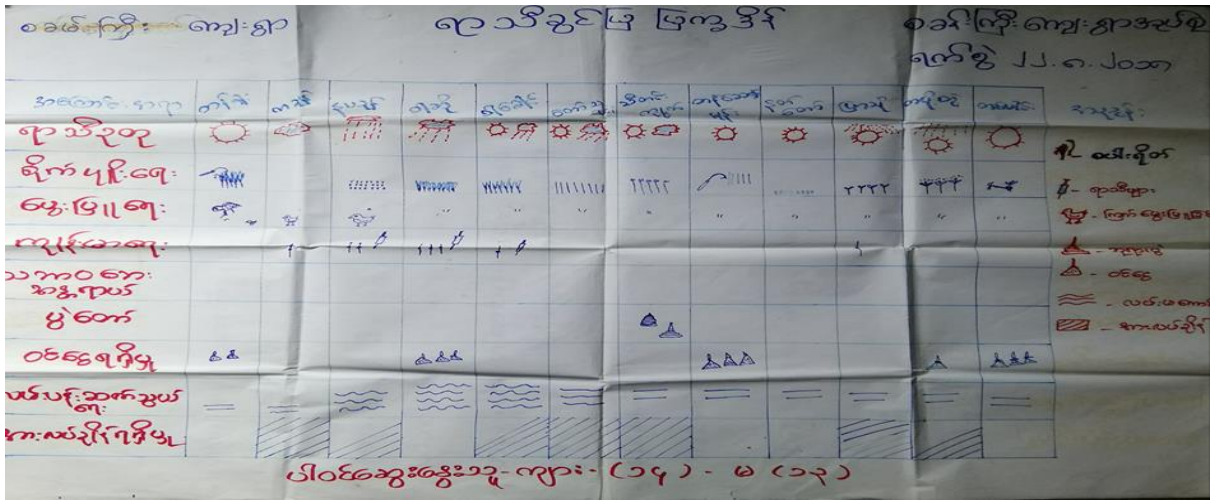 စခမ်းကြီး ကျေးရွာ ရာသီခွင်ပြ ပြက္ခဒိန် စခန်းကြီးကျေးရွာအုပ်စု
ရက်စွဲ ၂၂.၈.၂၀၁၁
အကြောင်းအရာ တန်ခူး ကဆုန် နယုန် ဝါဆို ဝါခေါင် တော်သလင်း သီတင်းကျွတ် တန်ဆောင်မုန်း နတ်တော် ပြာသို တပို့တွဲ တပေါင်း
ရာသီဥတု
စိုက်ပျိုးရေး
မွေးမြူရေး
ကျန်းမာရေး
သဘာဝဘေး
အန္တရာယ်
ပွဲတော်
ဝင်ငွေရရှိမှု
လမ်းပန်းဆက်သွယ်
ရေး
အားလပ်ချိန်ရရှိမှု
- ရာသီဖျား
- ဝင်ငွေ
- အားလပ်ချိန်
ပါဝင်ဆွေးနွေးသူ - ကျား - (၁၄) - မ (၁၃)